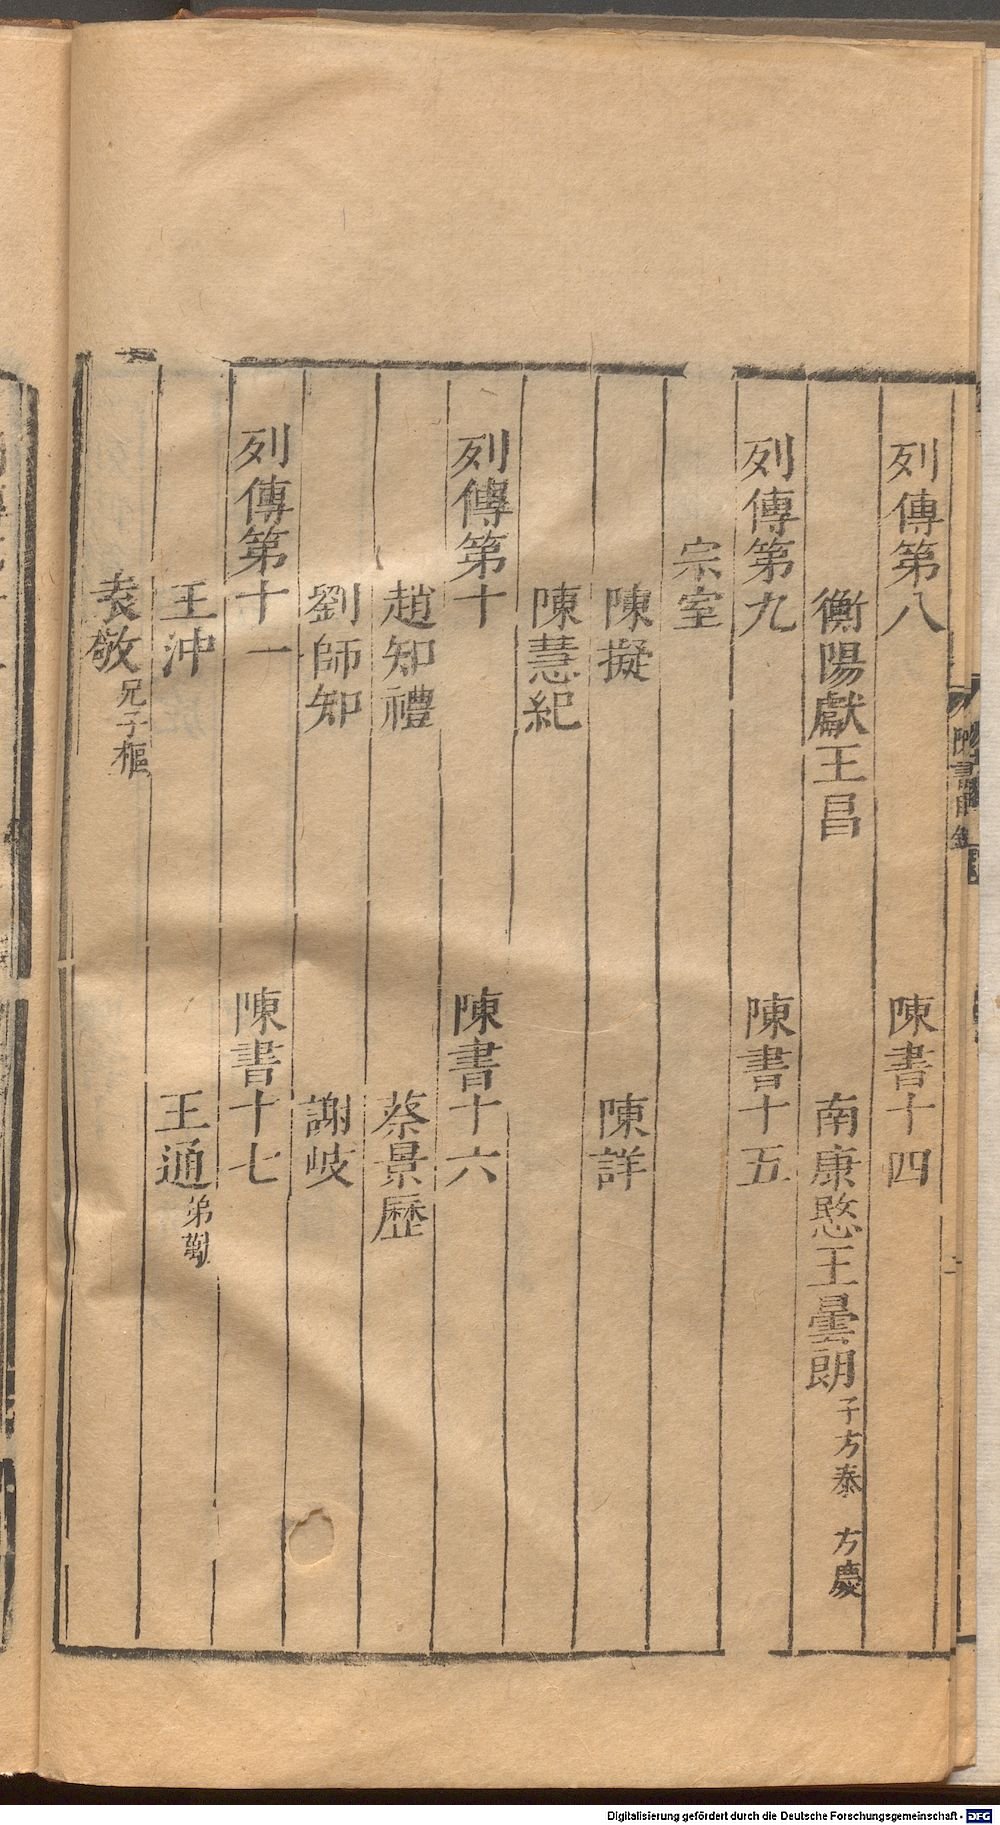 列傳第八　陳書十四
衡陽獻王昌　南康愍王曇朗子方泰　方慶
列傳第九　陳書十五
宗室
陳擬　陳詳
陳慧紀
列傳第十　陳書十六
趙知禮　蔡景歷
劉師知　謝岐
列傳第十一　陳書十七
王沖　王通弟勱
袁敬兄子樞
Digitalisierung gefördert durch die Deutsche Forschungsgemeinschaft - DFG